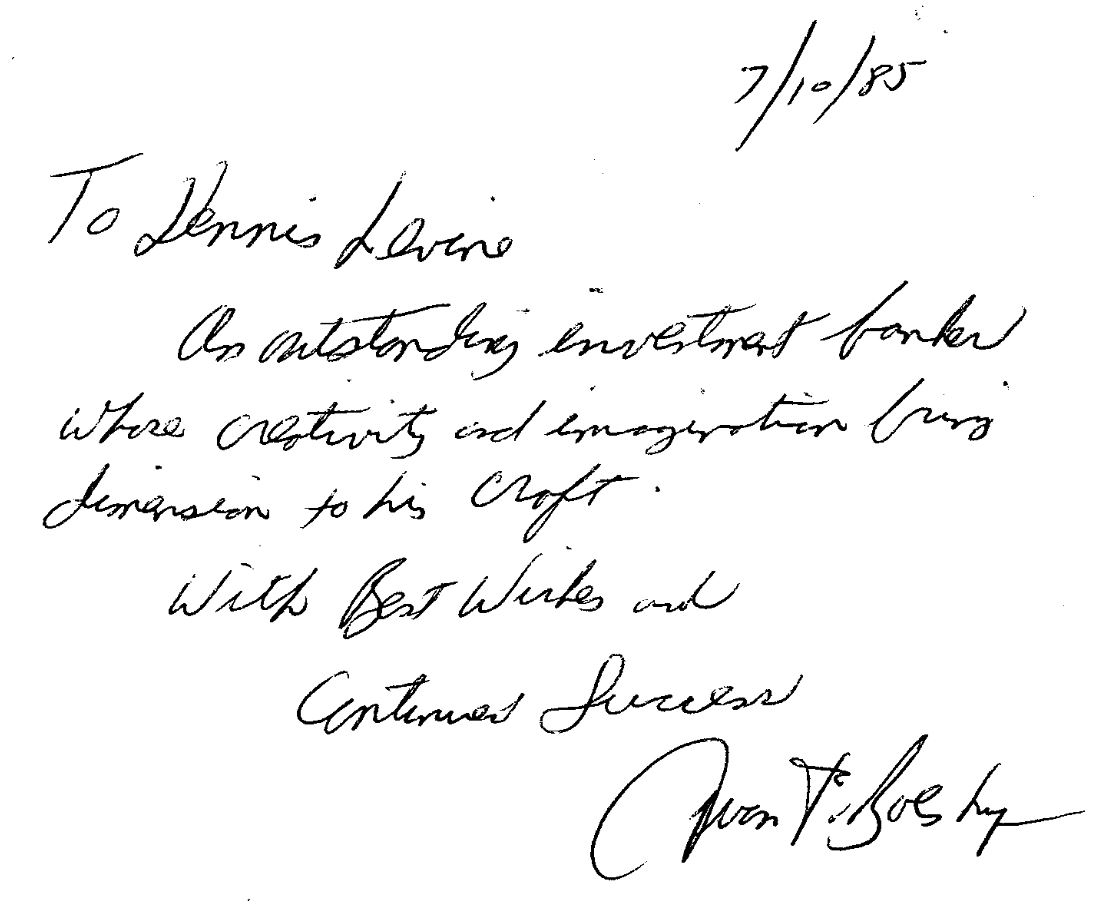 7/10/85
To Dennis Levine
An outstanding investment banker
whose creativity and imagination bring
dimension to his craft.
With Best Wishes and
Continued Success
Ivan F. Boesky